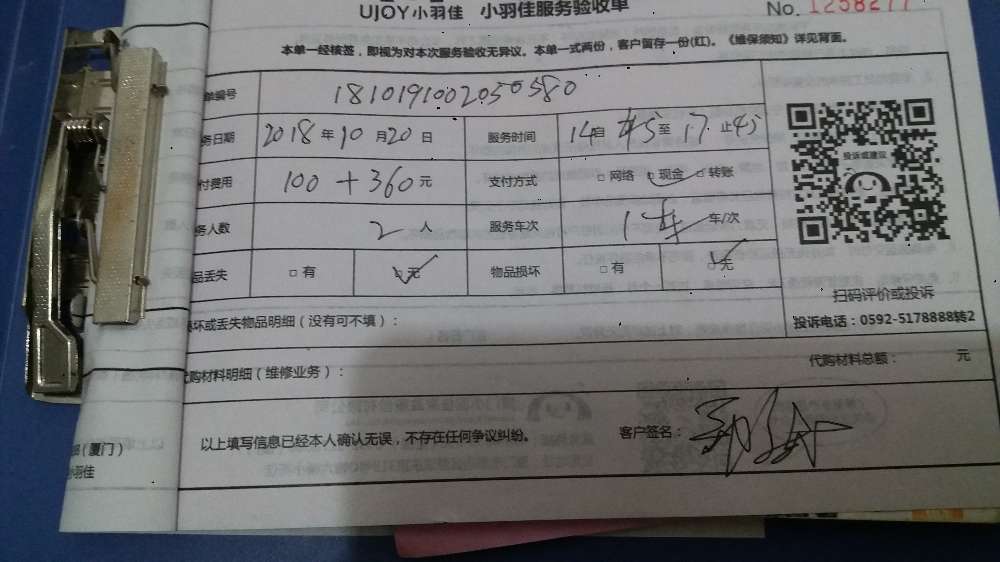 UJOY小羽佳 小羽佳服务验收单
No. 1258277
本单一经核签，即视为对本次服务验收无异议。本单一式两份，客户留存一份(红)。《维保须知》详见背面。
单编号 1810191002050580
务日期 2018年10月20日 服务时间 14自 45至17止45
付费用 100+360元 支付方式 □网络 □现金 □转账
务人数 2人 服务车次 1车 车/次
品丢失 □有 □无 物品损坏 □有 □无
投诉或建议
扫码评价或投诉
投诉电话：0592-5178888转2
损坏或丢失物品明细（没有可不填）：
代购材料明细（维修业务）： 代购材料总额： 元
以上填写信息已经本人确认无误，不存在任何争议纠纷。 客户签名：
（厦门）
小羽佳